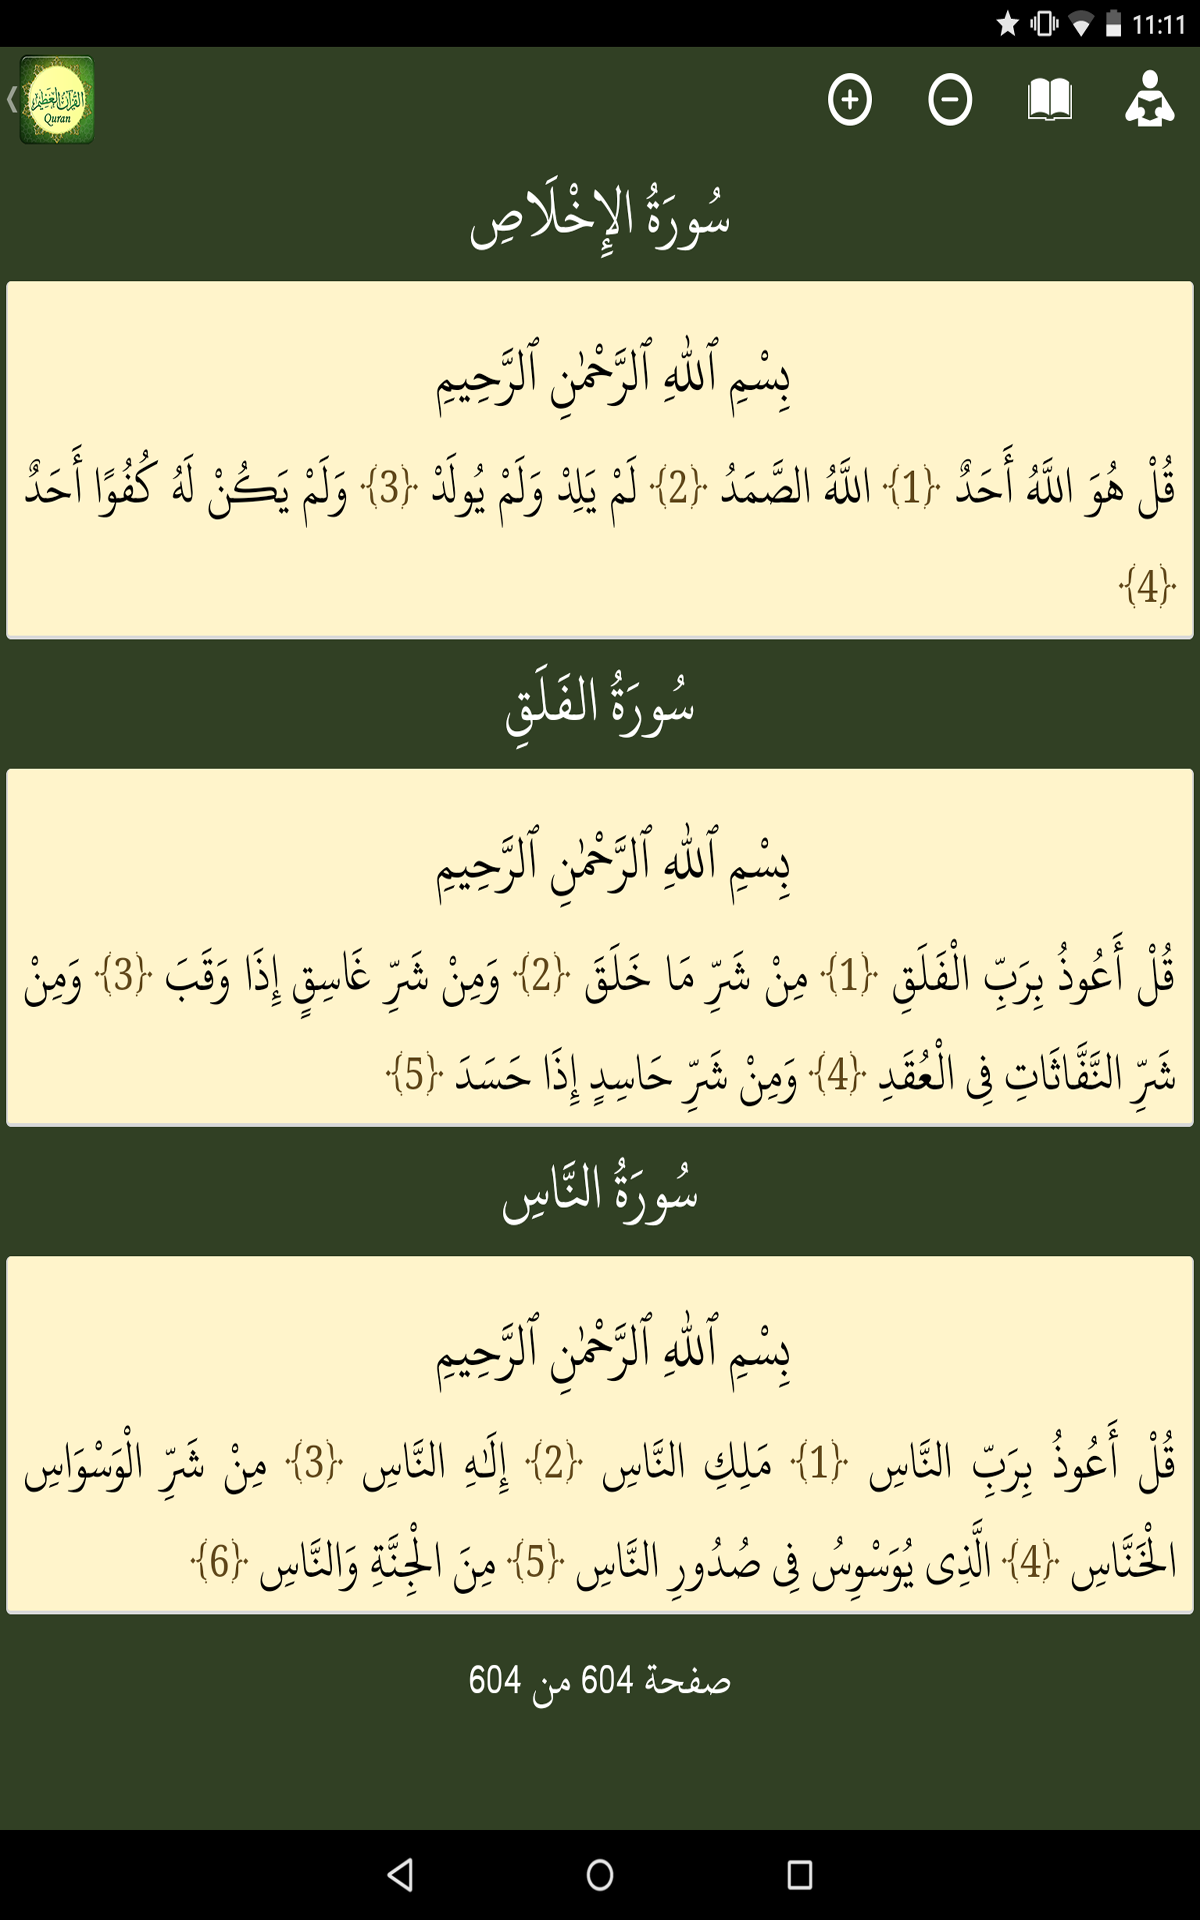 11:11
القرآن العظيم
Quran
سُورَةُ الإِخْلَاصِ
بِسْمِ ٱللَّهِ ٱلرَّحْمَٰنِ ٱلرَّحِيمِ
قُلْ هُوَ اللَّهُ أَحَدٌ ﴿1﴾ اللَّهُ الصَّمَدُ ﴿2﴾ لَمْ يَلِدْ وَلَمْ يُولَدْ ﴿3﴾ وَلَمْ يَكُنْ لَهُ كُفُوًا أَحَدٌ
﴿4﴾
سُورَةُ الفَلَقِ
بِسْمِ ٱللَّهِ ٱلرَّحْمَٰنِ ٱلرَّحِيمِ
قُلْ أَعُوذُ بِرَبِّ الْفَلَقِ ﴿1﴾ مِنْ شَرِّ مَا خَلَقَ ﴿2﴾ وَمِنْ شَرِّ غَاسِقٍ إِذَا وَقَبَ ﴿3﴾ وَمِنْ
شَرِّ النَّفَّاثَاتِ فِى الْعُقَدِ ﴿4﴾ وَمِنْ شَرِّ حَاسِدٍ إِذَا حَسَدَ ﴿5﴾
سُورَةُ النَّاسِ
بِسْمِ ٱللَّهِ ٱلرَّحْمَٰنِ ٱلرَّحِيمِ
قُلْ أَعُوذُ بِرَبِّ النَّاسِ ﴿1﴾ مَلِكِ النَّاسِ ﴿2﴾ إِلَٰهِ النَّاسِ ﴿3﴾ مِنْ شَرِّ الْوَسْوَاسِ
الْخَنَّاسِ ﴿4﴾ الَّذِى يُوَسْوِسُ فِى صُدُورِ النَّاسِ ﴿5﴾ مِنَ الْجِنَّةِ وَالنَّاسِ ﴿6﴾
صفحة 604 من 604